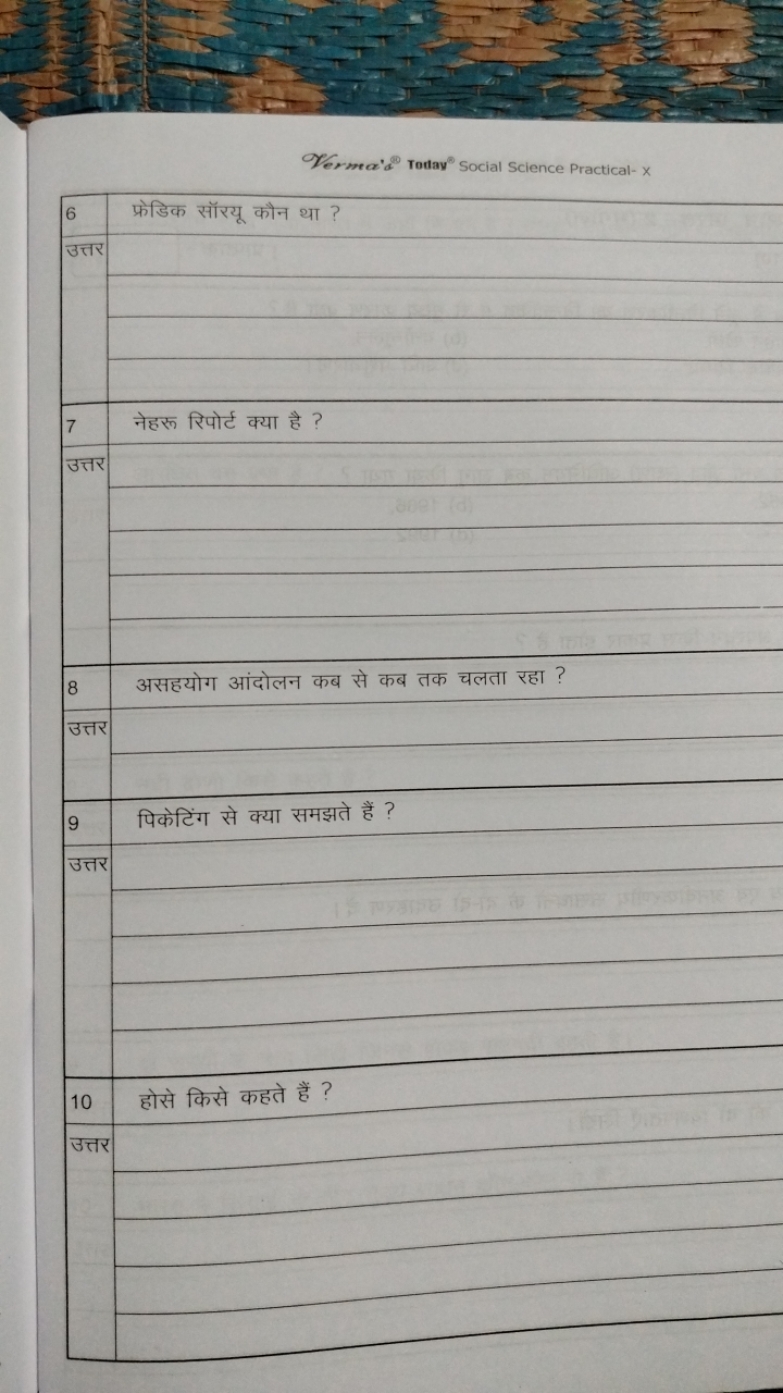 Verma's® Today® Social Science Practical- X
6 फ्रेडिक सॉरयू कौन था ?
उत्तर
7 नेहरू रिपोर्ट क्या है ?
उत्तर
8 असहयोग आंदोलन कब से कब तक चलता रहा ?
उत्तर
9 पिकेटिंग से क्या समझते हैं ?
उत्तर
10 होसे किसे कहते हैं ?
उत्तर